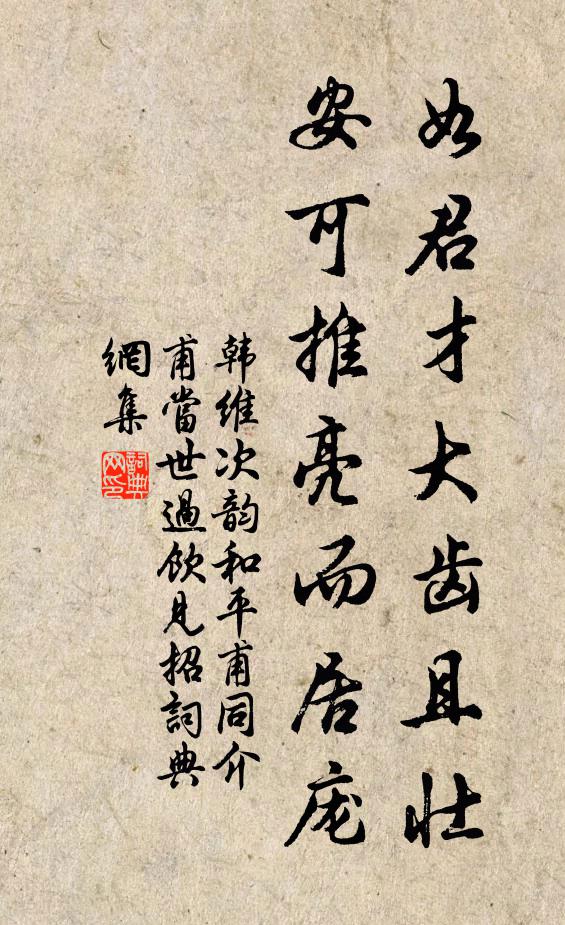 如君才大齿且壮
安可推亮而居庞
韩维次韵和平甫同介
甫當世過飲見招詞典
網集
詞典网印